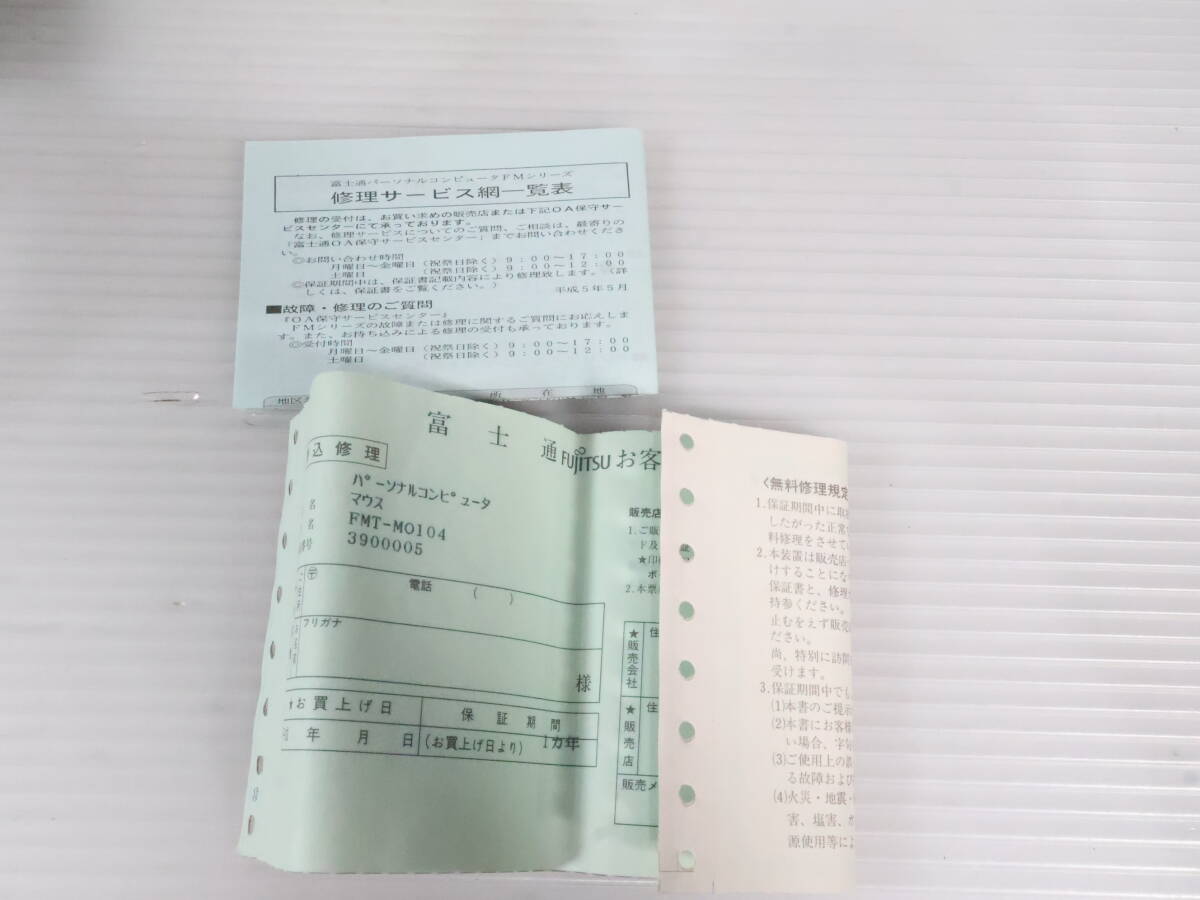 富士通パーソナルコンピュータFMシリーズ
修理サービス網一覧表
修理の受付は、お買い求めの販売店または下記OA保守サー
ビスセンターにて承っております。
なお、修理サービスについてのご質問、ご相談は、最寄りの
『富士通OA保守サービスセンター』までお問い合わせくださ
い。
◎お問い合わせ時間
月曜日～金曜日（祝祭日除く）9：00～17：00
土曜日（祝祭日除く）9：00～12：00
◎保証期間中は、保証書記載内容により修理致します。（詳
しくは、保証書をご覧ください。）
平成5年5月
■故障・修理のご質問
『OA保守サービスセンター』
FMシリーズの故障または修理に関するご質問にお応えしま
す。また、お持ち込みによる修理の受付も承っております。
◎受付時間
月曜日～金曜日（祝祭日除く）9：00～17：00
土曜日（祝祭日除く）9：00～12：00
地区
所在地
富士通 FUJITSU お客
込修理
名 パーソナルコンピュータ
マウス
名 FMT-MO104
号 3900005
〒
電話 （ ）
フリガナ
様
★お買上げ日 保証期間
年 月 日 （お買上げ日より） 1カ年
販売店
1.ご販
ド及
★印
ボ
2.本票
★販売会社 住
★販売店 住
販売メ
〈無料修理規定
1.保証期間中に取
したがった正常
料修理をさせて
2.本装置は販売店
けすることにな
保証書と、修理
持参ください。
止むをえず販売
ださい。
尚、特別に訪問
受けます。
3.保証期間中でも
(1)本書のご提示
(2)本書にお客様
い場合、字句
(3)ご使用上の誤
る故障および
(4)火災・地震・
害、塩害、ガ
源使用等によ